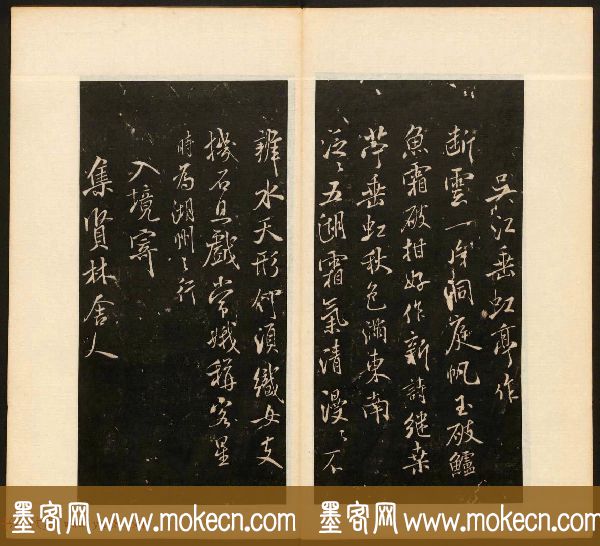 吴江垂虹亭作
断雲一片洞庭帆玉破鱸
魚霜破柑好作新詩継桑
苧垂虹秋色満東南
泛〻五湖霜氣清漫〻不
辨水天形何須織女支
機石且戲常娥稱客星
時為湖州之行
入境寄
集賢林舍人
墨客网 www.mokecn.com 墨客网 www.mokecn.com